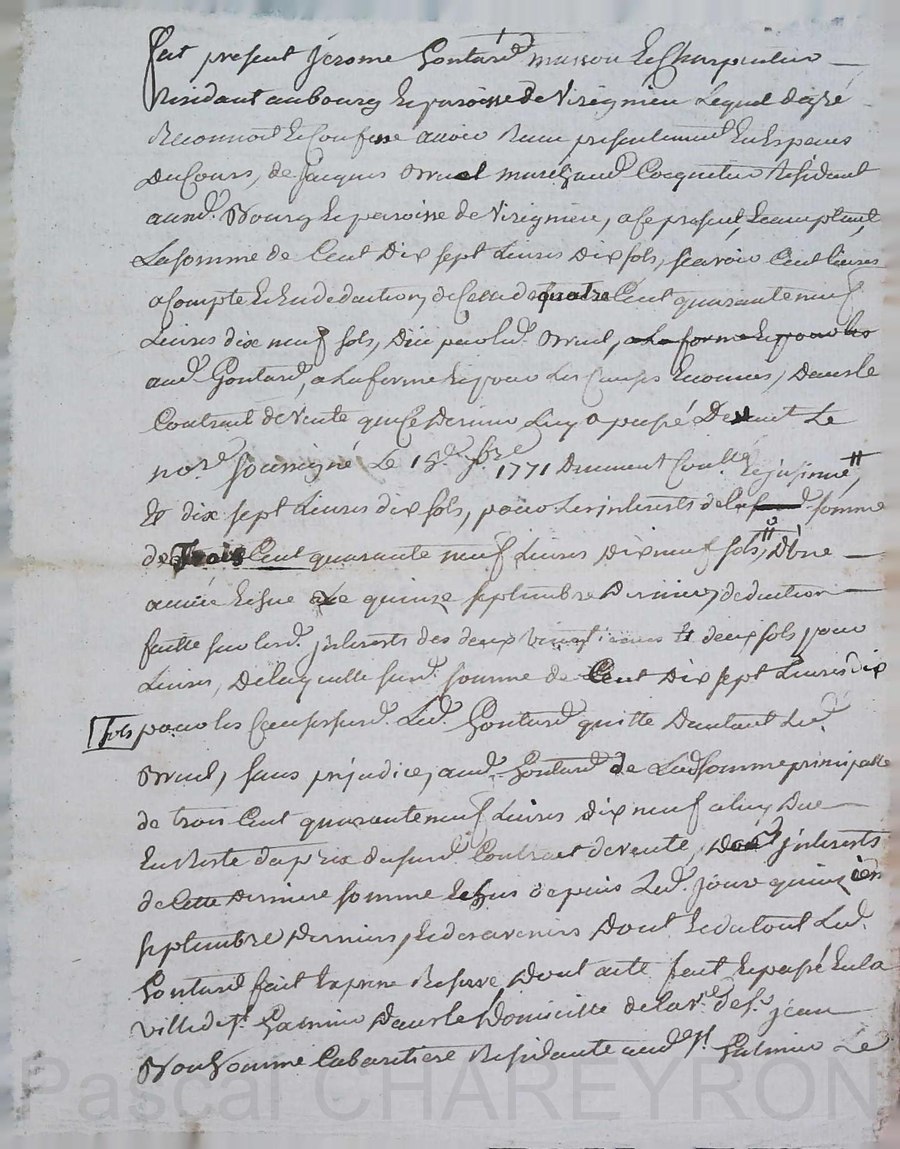 fut present jerome Gontard masson & Charpentier
Residant au bourg & paroisse de Virignieu Lequel de gré
Reconnoit & Confesse avoir Reçu presentement En Especes
Du Cours, de Jacques marchand Cocquetier Résidant
aud. Bourg & paroisse de Virignieu, a ce present, & acceptant,
La somme de Cent Dix sept Livres Dix sols, scavoir Cent livres
a Compte & En deduction, de Celle de quatre Cent quarante neuf
Livres dix neuf sols, Düe par led. a la forme & pour les
aud. Gontard, a La forme & pour Les Causes Enoncées, Dans le
Contrat de Vente que Ce Dernier Luy a passé Devant Le
nore. Soussigné Le 15e 1771 Duement Conllé &
Et dix sept Livres dix sols, pour Les interests de la somme
de Trois Cent quarante neuf Livres Dix neuf sols, D'une
année Echue Le quinze septembre Dernier, deduction
faitte sur lesd. jnterests des deux vingtiemes & deux sols pour
Livres, De laquelle susd. somme de Cent Dix sept Livres dix
sols pour les Causes susd. Led. Gontard quitte Dautant Led.
sans prejudice, aud. Gontard de Lad somme principalle
de trois Cent quarante neuf Livres Dix neuf a luy Due
En Reste du prix du susd. Contract de vente, jnterests
de Cette Derniere somme Echus depuis Led. jour quinzieme
septembre Dernier, & des avenirs Dont & du tout Led.
Gontard fait Expresse Reserve, Dont acte fait & passé En la
ville de St. Galmier Dans le Domicille de la ve. de fu jean
Cabaretiere Residante aud. St. Galmier Le
Pascal CHAREYRON